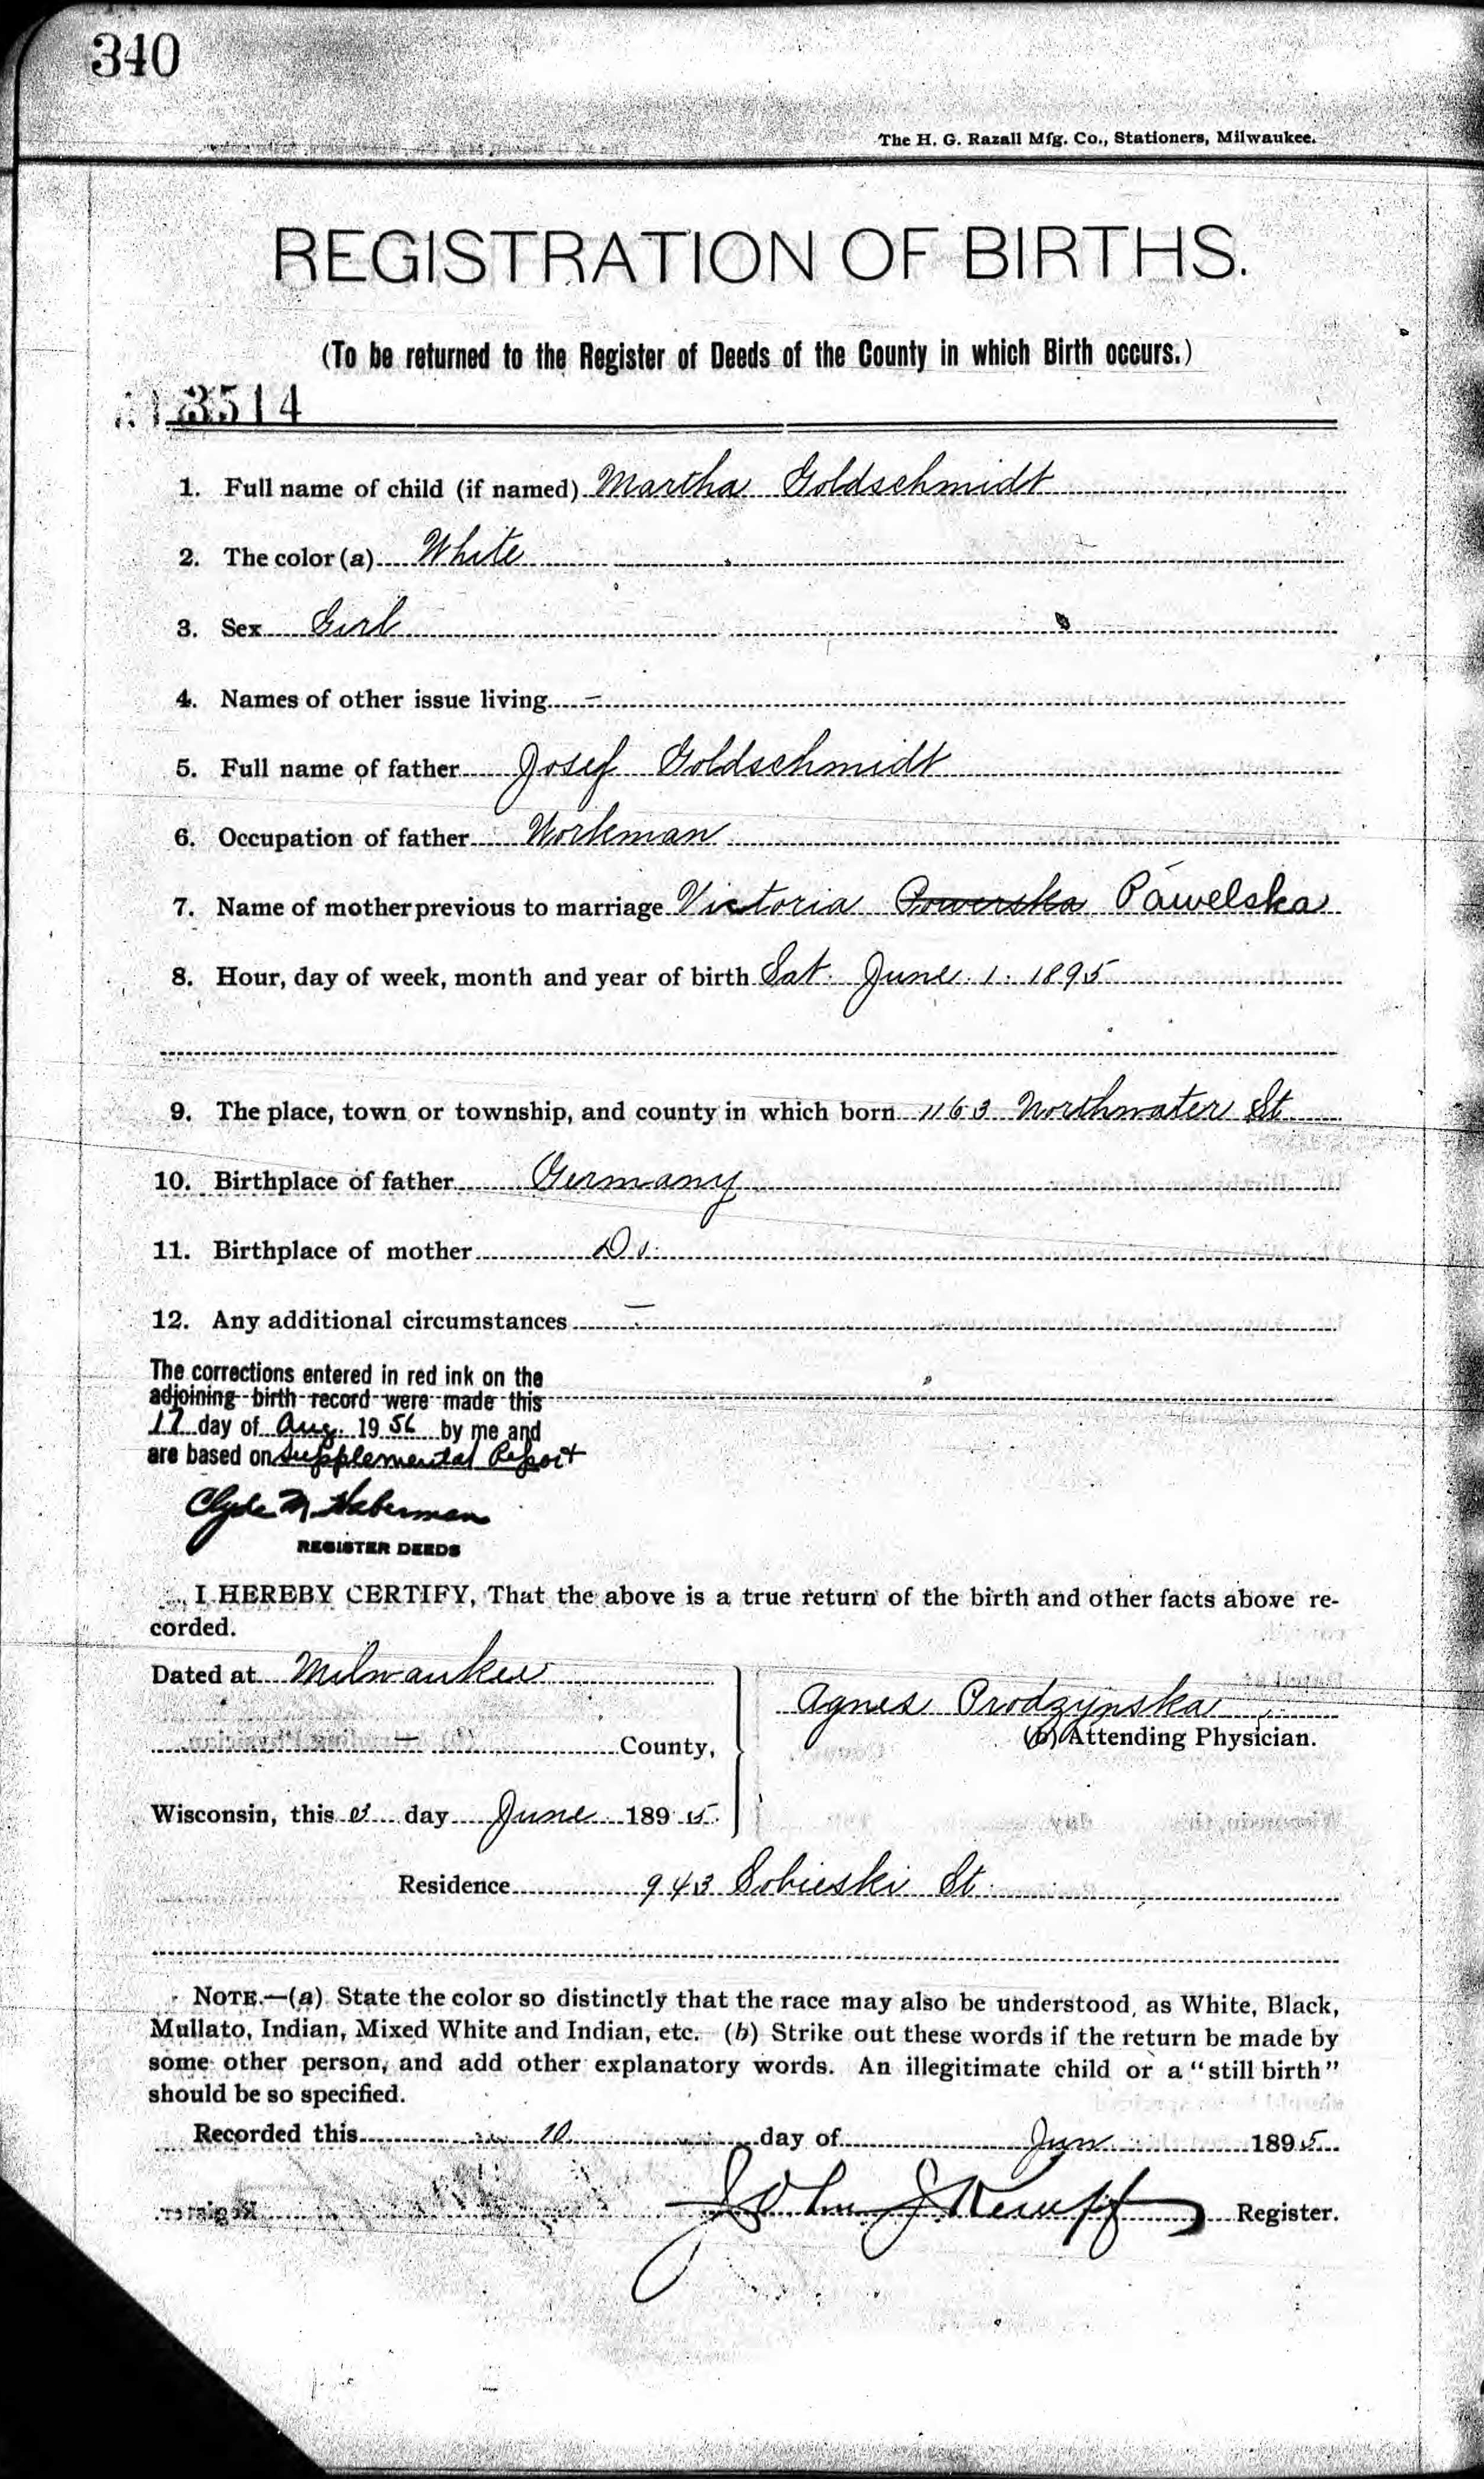 340
The H. G. Razall Mfg. Co., Stationers, Milwaukee.
REGISTRATION OF BIRTHS.
(To be returned to the Register of Deeds of the County in which Birth occurs.)
3514
1. Full name of child (if named) Martha Goldschmidt
2. The color (a) White
3. Sex Girl
4. Names of other issue living –
5. Full name of father Josef Goldschmidt
6. Occupation of father Workman
7. Name of mother previous to marriage Victoria Powerska Pawelska
8. Hour, day of week, month and year of birth Sat. June 1. 1895
9. The place, town or township, and county in which born 1163 Northwater St
10. Birthplace of father Germany
11. Birthplace of mother Do.
12. Any additional circumstances –
The corrections entered in red ink on the
adjoining birth record were made this
17 day of Aug. 19 56 by me and
are based on Supplemental Report
Clyde M Haberman
REGISTER DEEDS
I HEREBY CERTIFY, That the above is a true return of the birth and other facts above re-
corded.
Dated at Milwaukee
– County,
Wisconsin, this day June 1895.
Agnes Prodzynska
(b) Attending Physician.
Residence 943 Sobieski St.
NOTE.—(a) State the color so distinctly that the race may also be understood, as White, Black,
Mullato, Indian, Mixed White and Indian, etc. (b) Strike out these words if the return be made by
some other person, and add other explanatory words. An illegitimate child or a "still birth"
should be so specified.
Recorded this 10 day of Jun 1895
John Register.